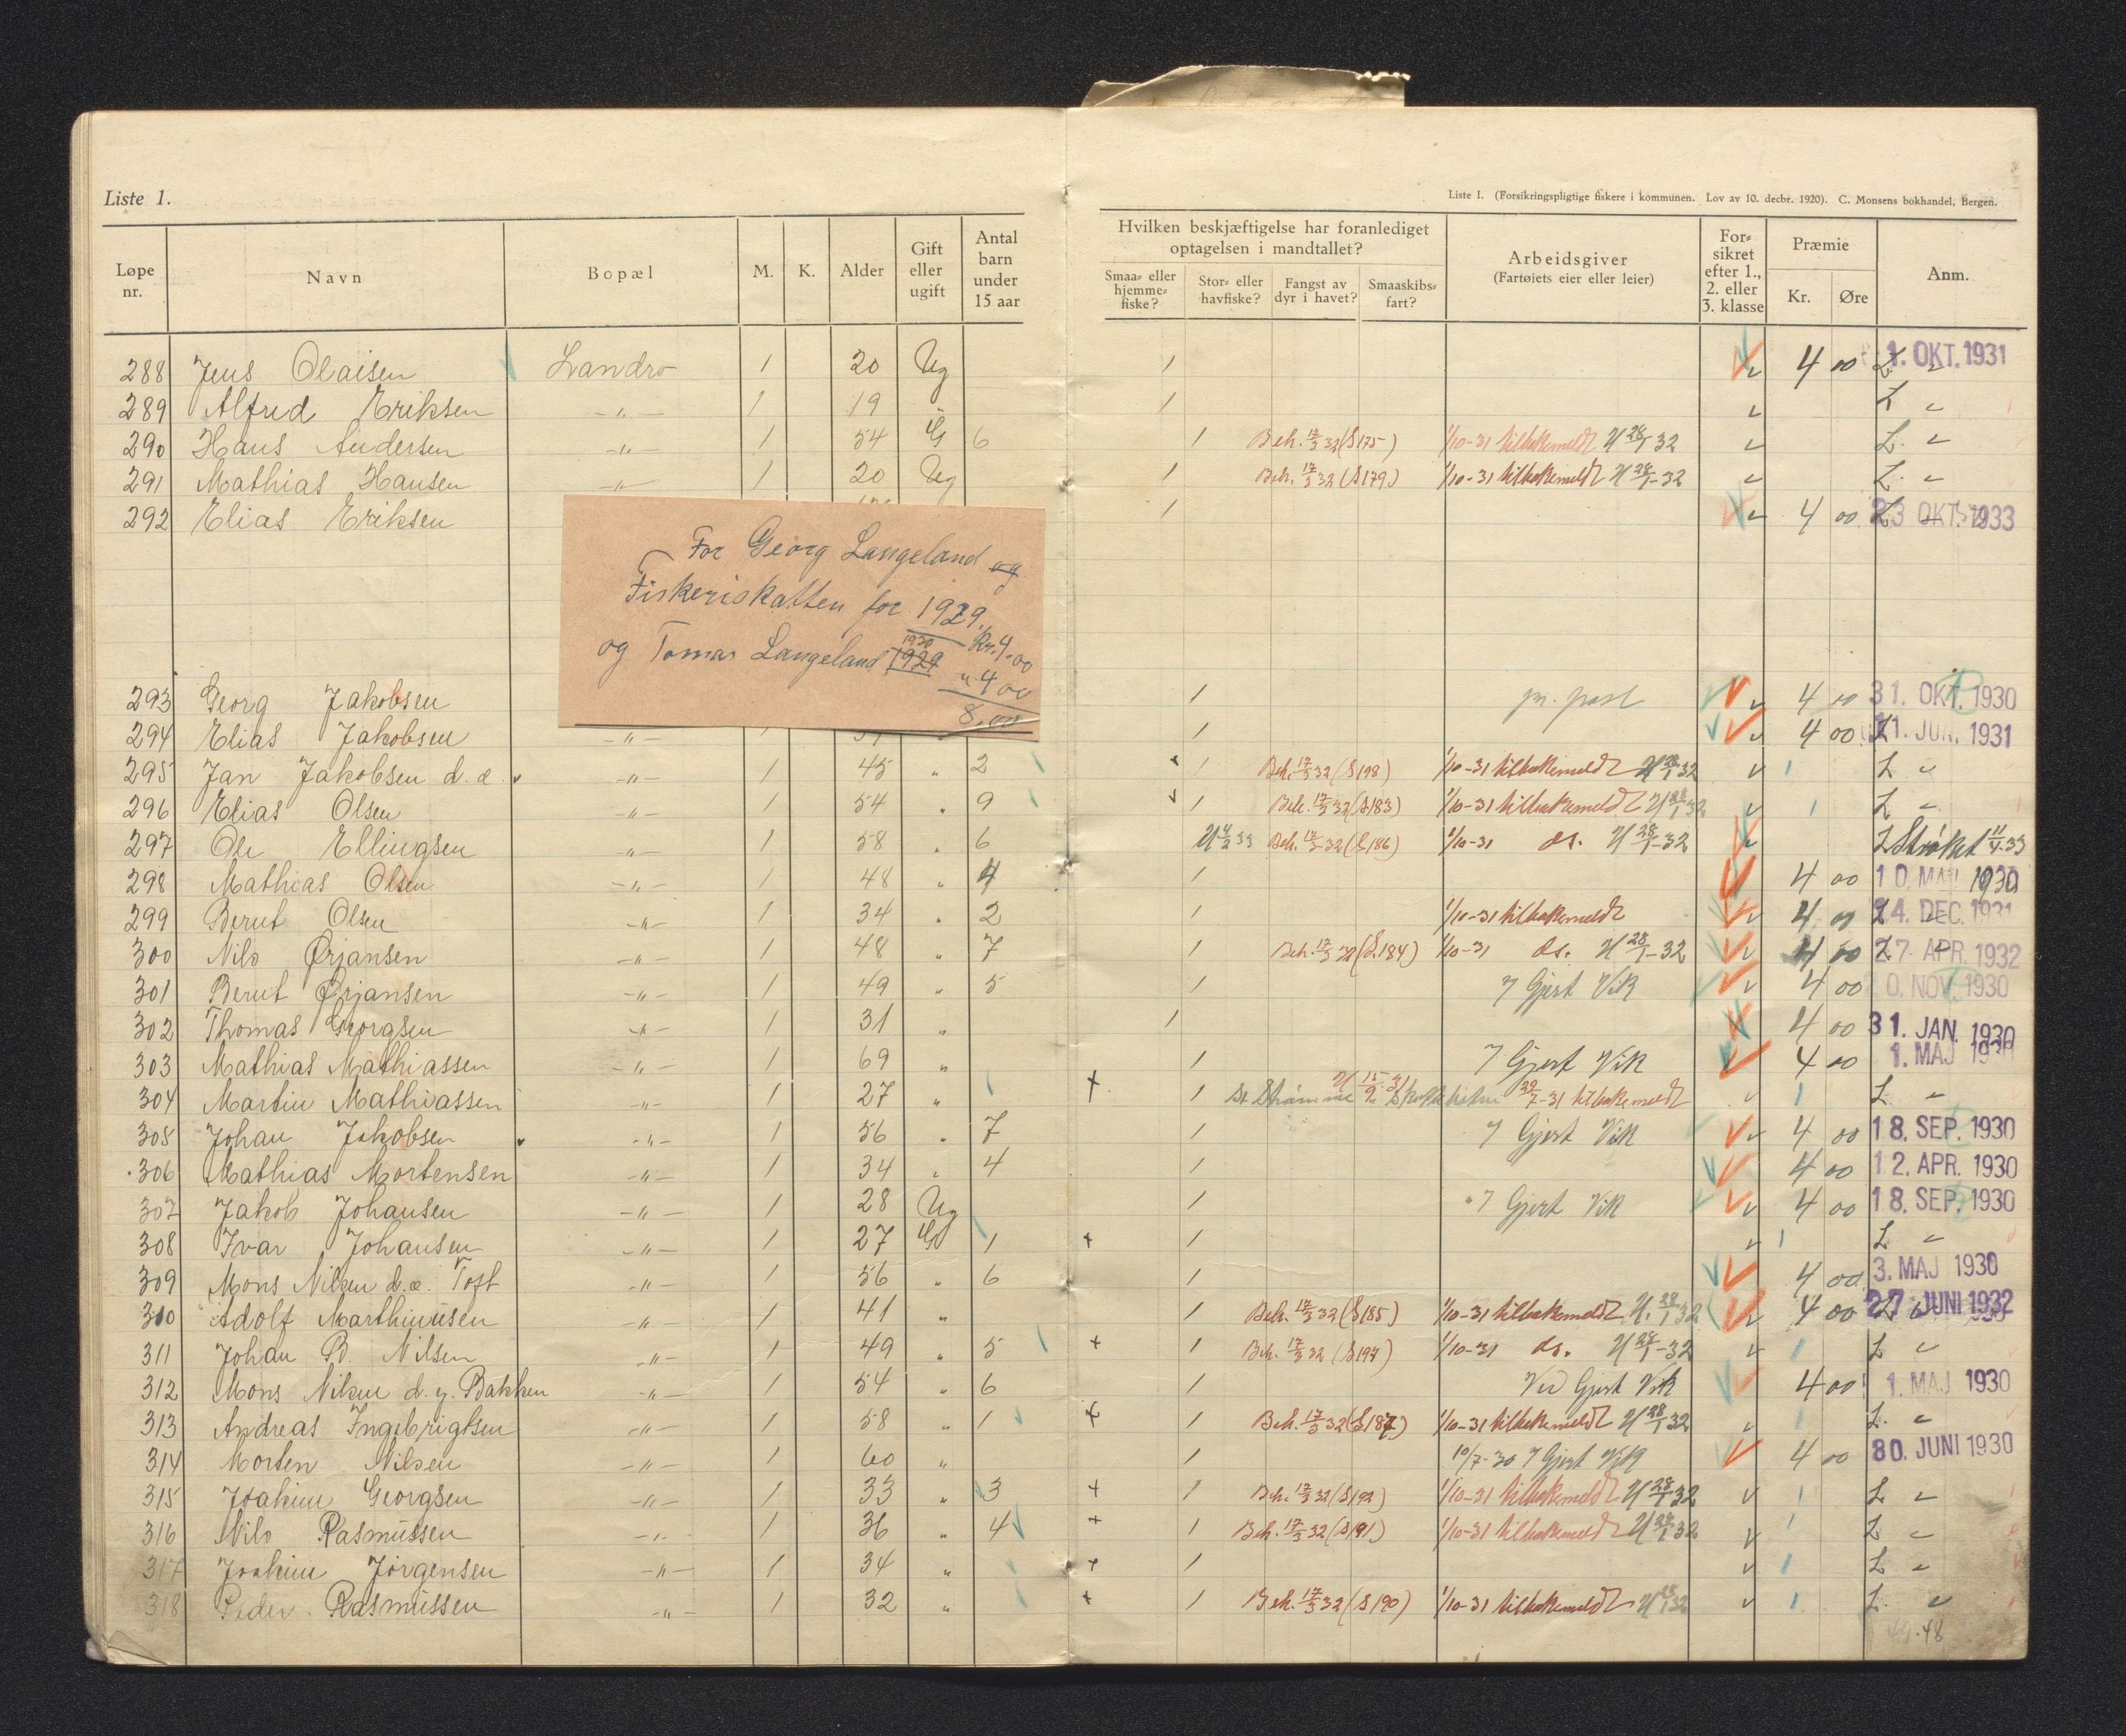 Liste 1.
Liste 1. (Forsikringspligtige fiskere i kommunen. Lov av 10. decbr. 1920). C. Monsens bokhandel, Bergen.
Løpe nr. Navn Bopæl M. K. Alder Gift eller ugift Antal barn under 15 aar
Hvilken beskjæftigelse har foranlediget optagelsen i mandtallet?
Smaa- eller hjemme-fiske? Stor- eller havfiske? Fangst av dyr i havet? Smaaskibs-fart?
Arbeidsgiver (Fartøiets eier eller leier) For-sikret efter 1., 2. eller 3. klasse Præmie Kr. Øre Anm.
288 Jens Olaisen Landro 1 20 Ug 1 4 00 1. OKT. 1931
289 Alfred Eriksen -"- 1 19 " 1 L "
290 Hans Andersen -"- 1 54 G 6 1 Beh. 17/3 32 (S175) 1/10-31 tilbakemeldt U 28/1-32 L "
291 Mathias Hansen -"- 1 20 Ug 1 Beh. 17/3 32 (S179) 1/10-31 tilbakemeldt U 28/1-32 L "
292 Elias Eriksen 1 4 00 23 OKT. 1933
For Georg Langeland og
Fiskeriskatten for 1929. Kr. 4.00
og Tomas Langeland 1930 1929 " 4 00
8,00
293 Georg Jakobsen 1 pr. post 4 00 31. OKT. 1930
294 Elias Jakobsen -"- 1 4 00 L 11. JUN. 1931
295 Jan Jakobsen d.e. -"- 1 45 " 2 1 Beh. 17/3 32 (S198) 1/10-31 tilbakemeldt U 28/1-32 1 L "
296 Elias Olsen -"- 1 54 " 9 1 Beh. 17/3 32 (S183) 1/10-31 tilbakemeldt U 28/1 32 1 L "
297 Ole Ellingsen -"- 1 58 " 6 U 4/2 33 Beh. 17/3-32 (S186) 1/10-31 ds. U 28/1-32 L Strøket 11/4-33
298 Mathias Olsen -"- 1 48 " 4 1 4 00 10. MAI 1930
299 Berut Olsen -"- 1 34 " 2 1 1/10-31 tilbakemeldt 4 00 24. DEC. 1931
300 Nils Ørjansen -"- 1 48 " 7 1 Beh. 17/3 32 (S.184) 1/10-31 ds. U 28/1-32 4 00 27. APR. 1932
301 Berut Ørjansen -"- 1 49 " 5 1 7 Gjert Vik 4 00 0. NOV. 1930
302 Thomas Georgsen -"- 1 31 " 1 4 00 31. JAN. 1930
303 Mathias Mathiassen -"- 1 69 " 1 7 Gjert Vik 4 00 1. MAJ 1930
304 Martin Mathiassen -"- 1 27 " + 1 U 15/9 31 tilbakemeldt 1 L "
305 Johan Jakobsen -"- 1 56 " 7 1 7 Gjert Vik 4 00 18. SEP. 1930
306 Mathias Mortensen -"- 1 34 " 4 1 4 00 12. APR. 1930
307 Jakob Johansen -"- 1 28 Ug 1 7 Gjert Vik 4 00 18. SEP. 1930
308 Ivar Johansen -"- 1 27 G 1 + 1 1 L "
309 Mons Nilsen d.e. Toft -"- 1 56 " 6 1 4 00 3. MAJ 1930
310 Adolf Marthinusen -"- 1 41 " 1 Beh. 17/3 32 (S185) 1/10-31 tilbakemeldt U. 28/1 32 4 00 27. JUNI 1932
311 Johan B. Nilsen -"- 1 49 " 5 + 1 Beh. 17/3 32 (S194) 1/10-31 ds. U 28/1-32 1 L "
312 Mons Nilsen d.y. Bakken -"- 1 54 " 6 1 Ved Gjert Vik 4 00 1. MAJ 1930
313 Andreas Ingebrigtsen -"- 1 58 " 1 + 1 Beh. 17/3 32 (S187) 1/10-31 tilbakemeldt U 28/1 32 1 L. "
314 Morten Nilsen -"- 1 60 " 1 10/7-30 7 Gjert Vik 4 00 30. JUNI 1930
315 Joakim Georgsen -"- 1 33 " 3 + 1 Beh. 17/3 32 (S192) 1/10-31 tilbakemeldt U 28/1-32 1 L "
316 Nils Rasmussen -"- 1 36 " 4 + 1 Beh. 17/3 32 (S191) 1/10-31 tilbakemeldt U 28/1 32 1 L "
317 Joakim Jørgensen -"- 1 34 " + 1 1 L "
318 Peder Rasmussen -"- 1 32 " + 1 Beh. 17/3 32 (S190) 1/10-31 tilbakemeldt U 28/1 32 1 L. "